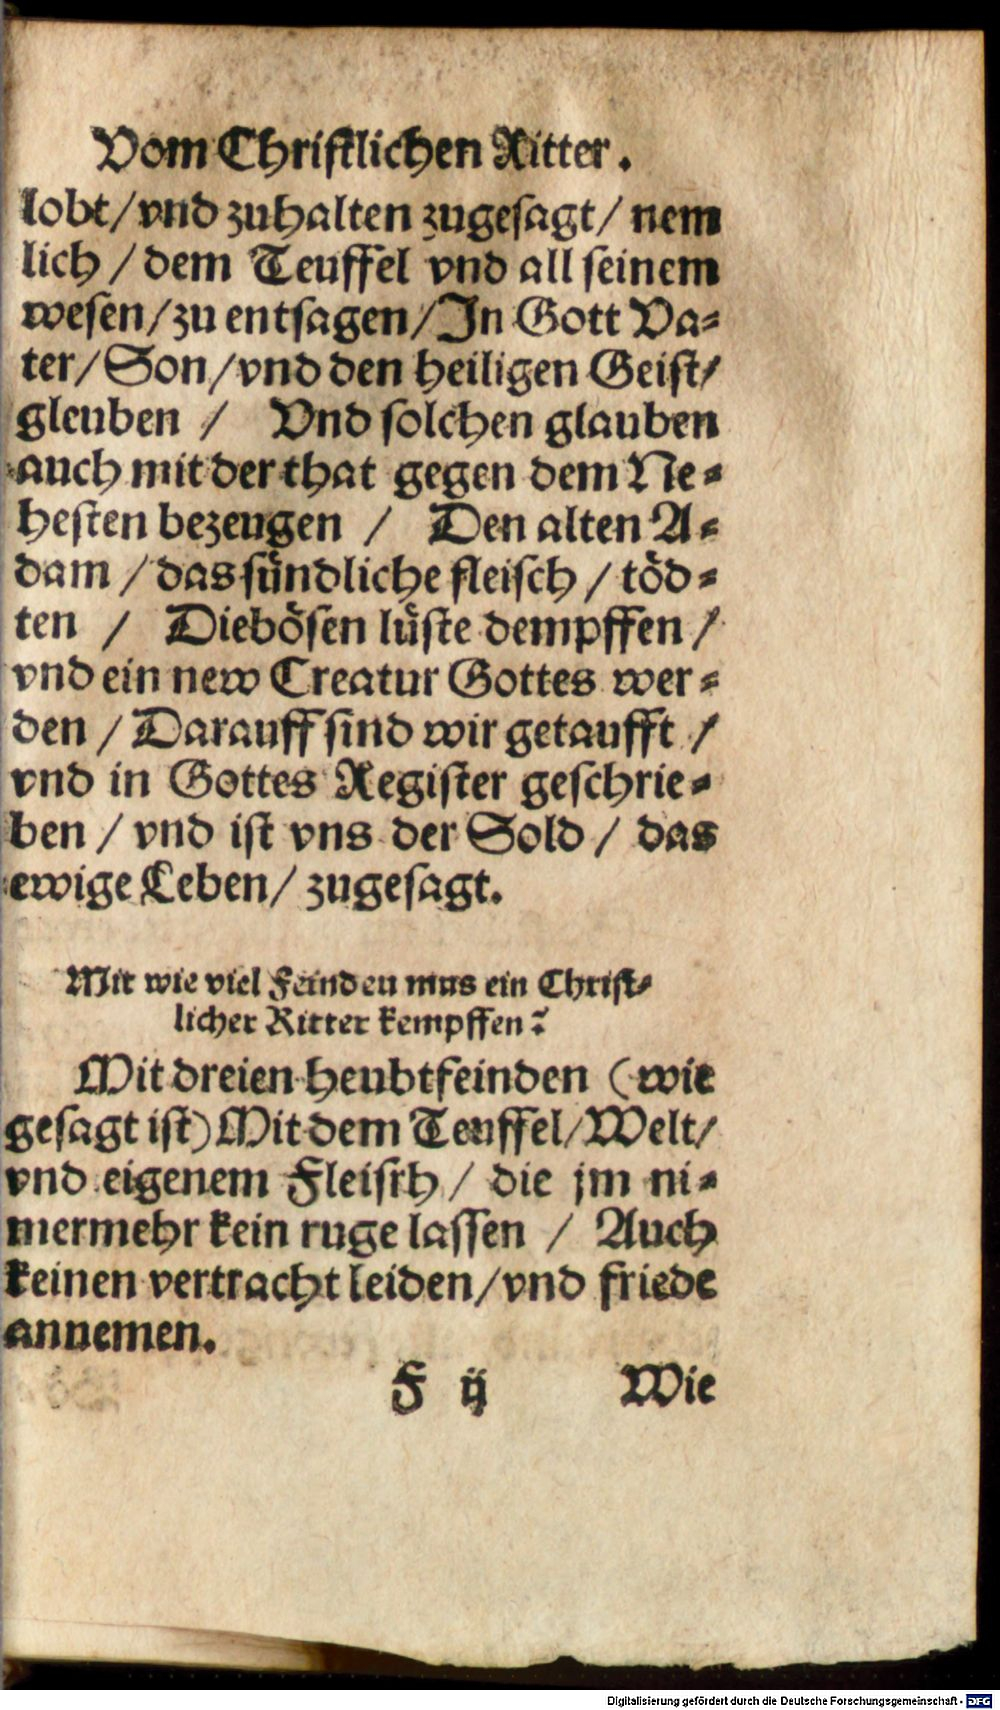 Vom Christlichen Ritter.
lobt/vnd zuhalten zugesagt/ nem
lich / dem Teuffel vnd all seinem
wesen/zu entsagen/In Gott Va-
ter/Son/vnd den heiligen Geist/
gleuben / Vnd solchen glauben
auch mit der that gegen dem Ne-
hesten bezeugen / Den alten A-
dam / das sündliche fleisch / töd-
ten / Diebösen lüste dempffen /
vnd ein new Creatur Gottes wer-
den / Darauff sind wir getaufft /
vnd in Gottes Register geschrie-
ben / vnd ist vns der Sold / das
ewige Leben/ zugesagt.
Mit wie viel Feinden mus ein Christ-
licher Ritter kempffen?
Mit dreien heubtfeinden (wie
gesagt ist) Mit dem Teuffel/Welt/
vnd eigenem Fleisrh / die jm ni-
mermehr kein ruge lassen / Auch
keinen vertracht leiden/vnd friede
annemen.
F ij Wie
Digitalisierung gefördert durch die Deutsche Forschungsgemeinschaft - DFG